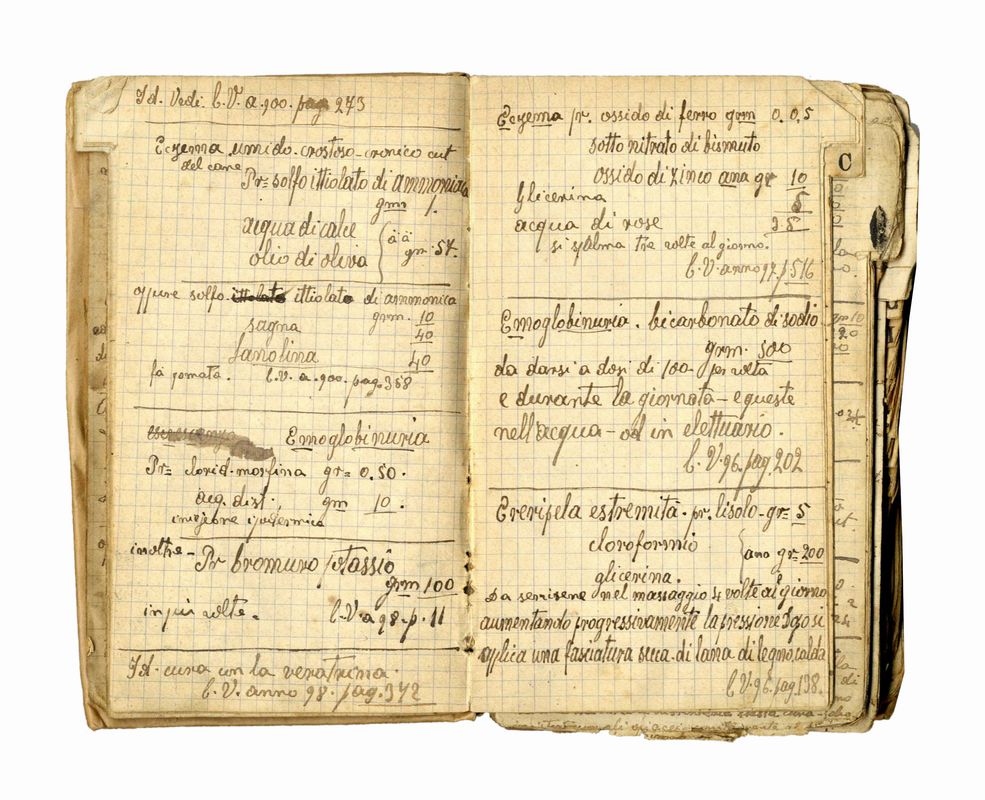 Id. Vedi. C.V. a. 900. pag 273
Eczema umido-crostoso-cronico cut
del cane
Pr= solfo ittiolato di ammonica
grm 1.
acqua di calce
olio di oliva
āā
gr. 57.
oppure solfo ittiolato di ammonica
grm. 10
sugna 40
lanolina 40
fa pomata. C.V. a. 900. pag. 358
Emoglobinuria
Pr= clorid. morfina gr= 0.50.
acq. dist. gm 10.
iniezione ipodermica
inoltre- Pr bromuro potassio
grm 100
in più volte. C.V. a 98. p. 11
Id. cura con la veratrina.
C.V. anno 98. pag. 372
Eczema pr. ossido di ferro grm 0.0,5
sotto nitrato di bismuto
ossido di zinco ana gr 10
Glicerina 5
acqua di rose 28
si spalma tre volte al giorno.
C.V. anno 97. p 516
C
Emoglobinuria. bicarbonato di sodio
grm. 500
da darsi a dosi di 100 per volta
e durante la giornata - e queste
nell'acqua - od in elettuario.
C.V. 96. pag 202
Ereripela estremità. pr. lisolo. gr= 5
cloroformio
ana gr= 200
glicerina.
Da servirsene nel massaggio 4 volte al giorno
aumentando progressivamente la pressione Dopo si
applica una fasciatura secca di lana di legno, calda
C.V. 96. pag. 138.